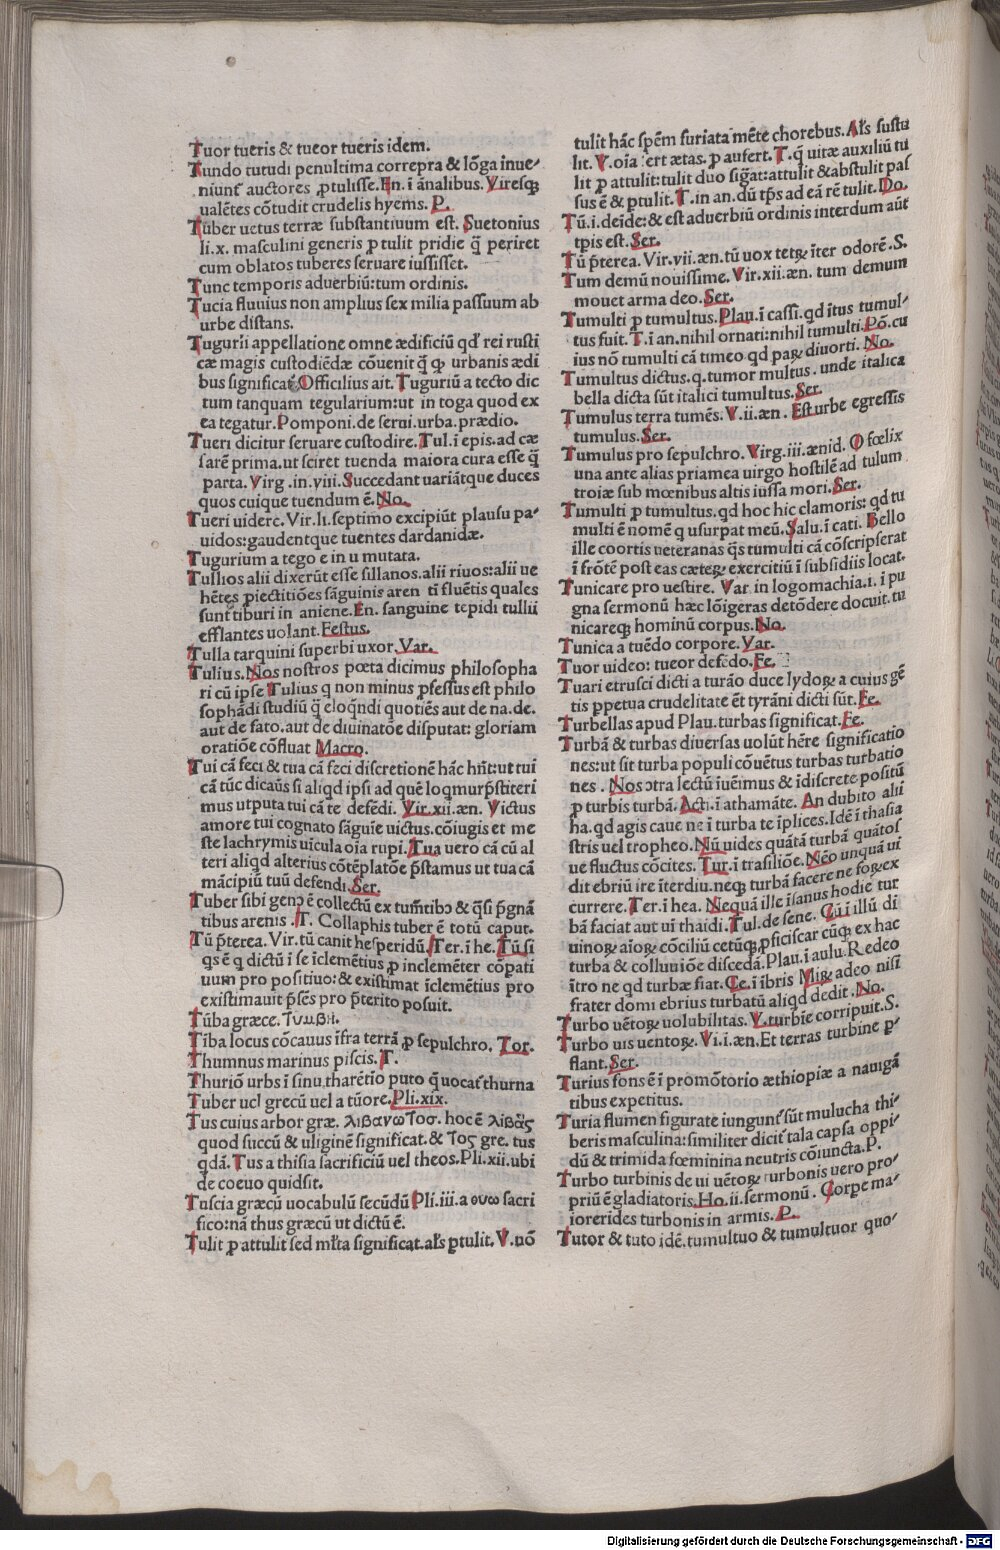 Tuor tueris & tueor tueris idem.
Tundo tutudi penultima correpra & lōga inue-
niunt auctores ꝓtulisse. En. ī ānalibus. Viresqꝫ
ualētes cōtudit crudelis hyems. P.
Tuber uetus terræ substantiuum est. Suetonius
li. x. masculini generis ꝓtulit pridie q̄ periret
cum oblatos tuberes seruare iussisset.
Tunc temporis aduerbiū: tum ordinis.
Tucia fluuius non amplius sex milia passuum ab
urbe distans.
Tugurii appellatione omne ædificiū qd̄ rei rusti
cæ magis custodiēdæ cōuenit q̄ ꝙ urbanis ædi
bus significat. Officilius ait. Tuguriū a tecto dic
tum tanquam tegularium: ut in toga quod ex
ea tegatur. Pomponi. de serui. urba. prædio.
Tueri dicitur seruare custodire. Tul. ī epis. ad cæ
sarē prima. ut sciret tuenda maiora cura esse q̄
parta. Virg. in. viii. Succedant uariātque duces
quos cuique tuendum ē. No.
Tueri uidere. Vir. li. septimo excipiūt plausu pa-
uidos: gaudentque tuentes dardanidæ.
Tugurium a tego e in u mutata.
Tullios alii dixerūt esse sillanos. alii riuos: alii ue
hētes ꝓiectitiōes sāguinis aren ti fluētis quales
sunt tiburi in aniene. En. sanguine tepidi tullii
efflantes uolant. Festus.
Tulla tarquini superbi uxor. Var.
Tulius. Nos nostros poeta dicimus philosopha
ri cū ipse Tulius q non minus ꝓfessus est philo
sophādi studiū q̄ eloqndi quotiēs aut de na. de.
aut de fato. aut de diuinatōe disputat: gloriam
oratiōe cōfluat Macro.
Tui cā feci & tua cā feci discretionē hāc hn̄t: ut tui
cā tūc dicaūs si aliqd ipsi ad quē loqmur p̄stiteri
mus utputa tui cā te defēdi. Vir. xii. æn. Victus
amore tui cognato sāguīe uictus. cōiugis et me
ste lachrymis uīcula oīa rupi. Tua uero cā cū al
teri aliqd alterius cōtēplatōe p̄stamus ut tua cā
mācipiū tuū defendi. Ser.
Tuber sibi genꝰ ē collectū ex tum̄tibꝰ & q̄si p̄gnā
tibus arenis. T. Collaphis tuber ē totū caput.
Tū p̄terea. Vir. tū canit hesperidū. Ter. ī he. Tū si
qs ē q dictū ī se īclemētius ꝓ inclemēter cōpati
uum pro positiuo: & existimat īclemētius pro
existimauit p̄sēs pro p̄terito posuit.
Tūba græce. τυμβη.
Tība locus cōcauus īfra terrā ꝓ sepulchro. Tor.
Thumnus marinus piscis. T.
Thuriō urbs ī sinu tharētio puto q̄ uocat thurna
Tuber uel grecū uel a tūore. Pli. xix.
Tus cuius arbor græ. λιβανωτοσ. hoc ē λιβας
quod succū & uliginē significat. & τος gre. tus
qdā. Tus a thisia sacrificiū uel theos. Pli. xii. ubi
de coeuo quidsit.
Tuscia græcū uocabulū secūdū Pli. iii. a ουω sacri
fico: nā thus græcū ut dictū ē.
Tulit ꝓ attulit sed ml̄ta significat. al's ꝓtulit. V. nō
tulit hāc spēm furiata mēte chorebus. Al's sustu
lit. V. oīa fert ætas. ꝓ aufert. T. q̄ uitæ auxiliū tu
lit ꝓ attulit: tulit duo sig̃at: attulit & abstulit pas
sus ē & ꝓtulit. T. in an. dū tp̄s ad eā rē tulit. Do.
Tū. i. deide: & est aduerbiū ordinis interdum aūt
tp̄is est. Ser.
Tū p̄terea. Vir. vii. æn. tū uox tetꝝ īter odorē. S.
Tum demū nouissime. Vir. xii. æn. tum demum
mouet arma deo. Ser.
Tumulti ꝓ tumultus. Plau. ī cassi. qd ītus tumul-
tus fuit. T. ī an. nihil ornati: nihil tumulti. Pō. cu
ius nō tumulti cā timeo qd paꝝ diuorti. No.
Tumultus dictus. q. tumor multus. unde italica
bella dicta sūt italici tumultus. Ser.
Tumulus terra tumēs. V. ii. æn. Est urbe egressis
tumulus. Ser.
Tumulus pro sepulchro. Virg. iii. ænid. O fœlix
una ante alias priamea uirgo hostilē ad tulum
troiæ sub mœnibus altis iussa mori. Ser.
Tumulti ꝓ tumultus. qd hoc hic clamoris: qd tu
multi ē nomē q usurpat meū. Salu. ī cati. Bello
ille coortis ueteranas q̄s tumulti cā cōscripserat
ī frōtē post eas cæteꝝ exercitiū ī subsidiis locat.
Tunicare pro uestire. Var in logomachia. i. ī pu
gna sermonū hæc lōigeras detōdere docuit. tu
nicareqꝫ hominū corpus. No.
Tunica a tuēdo corpore. Var.
Tuor uideo: tueor defēdo. Fe.
Tuari etrusci dicti a turāo duce lydoꝝ a cuius gē
tis ꝑpetua crudelitate ēt tyrāni dicti sūt. Fe.
Turbellas apud Plau. turbas significat. Fe.
Turbā & turbas diuersas uolūt hēre significatio
nes: ut sit turba populi cōuētus turbas turbatio
nes. Nos ɔtra lectū iuēimus & īdiscrete positū
ꝓ turbis turbā. Acti. ī athamāte. An dubito alii
ha. qd agis caue ne ī turba te īplices. Idē ī thasia
stris uel tropheo. Nū uides quātā turbā quātos
ue fluctus cōcites. Tur. ī trasiliōe. Nēo unquā ui
dit ebriū ire īterdiu. neqꝫ turbā facere ne foꝝ ex
currere. Ter. ī hea. Nequā ille īsanus hodie tur
bā faciat aut uī thaidi. Tul. de sene. Cū ī illū di
uinoꝝ aīoꝝ cōciliū cetūqꝫ ꝓficiscar cūqꝫ ex hac
turba & colluuiōe discedā. Plau. ī aulu. Redeo
ītro ne qd turbæ fiat. Ce. ī ībris Miꝝ adeo nisi
frater domi ebrius turbatū aliqd dedit. No.
Turbo uētoꝝ uolubilitas. V. turbīe corripuit. S.
Turbo uis uentoꝝ. Vi. i. æn. Et terras turbine ꝑ-
flant. Ser.
Turius fons ē ī promōtorio æthiopiæ a nauigā
tibus expetitus.
Turia flumen figurate iungunt sūt mulucha thi-
beris masculina: similiter dicit tala capsa oppi-
dū & trimida fœminina neutris cōiuncta. P.
Turbo turbinis de ui uētoꝝ turbonis uero pro-
priū ē gladiatoris. Ho. ii. sermonū. Corpe ma-
iorerides turbonis in armis. P.
Tutor & tuto idē. tumultuo & tumultuor quo-
Digitalisierung gefördert durch die Deutsche Forschungsgemeinschaft - DFG